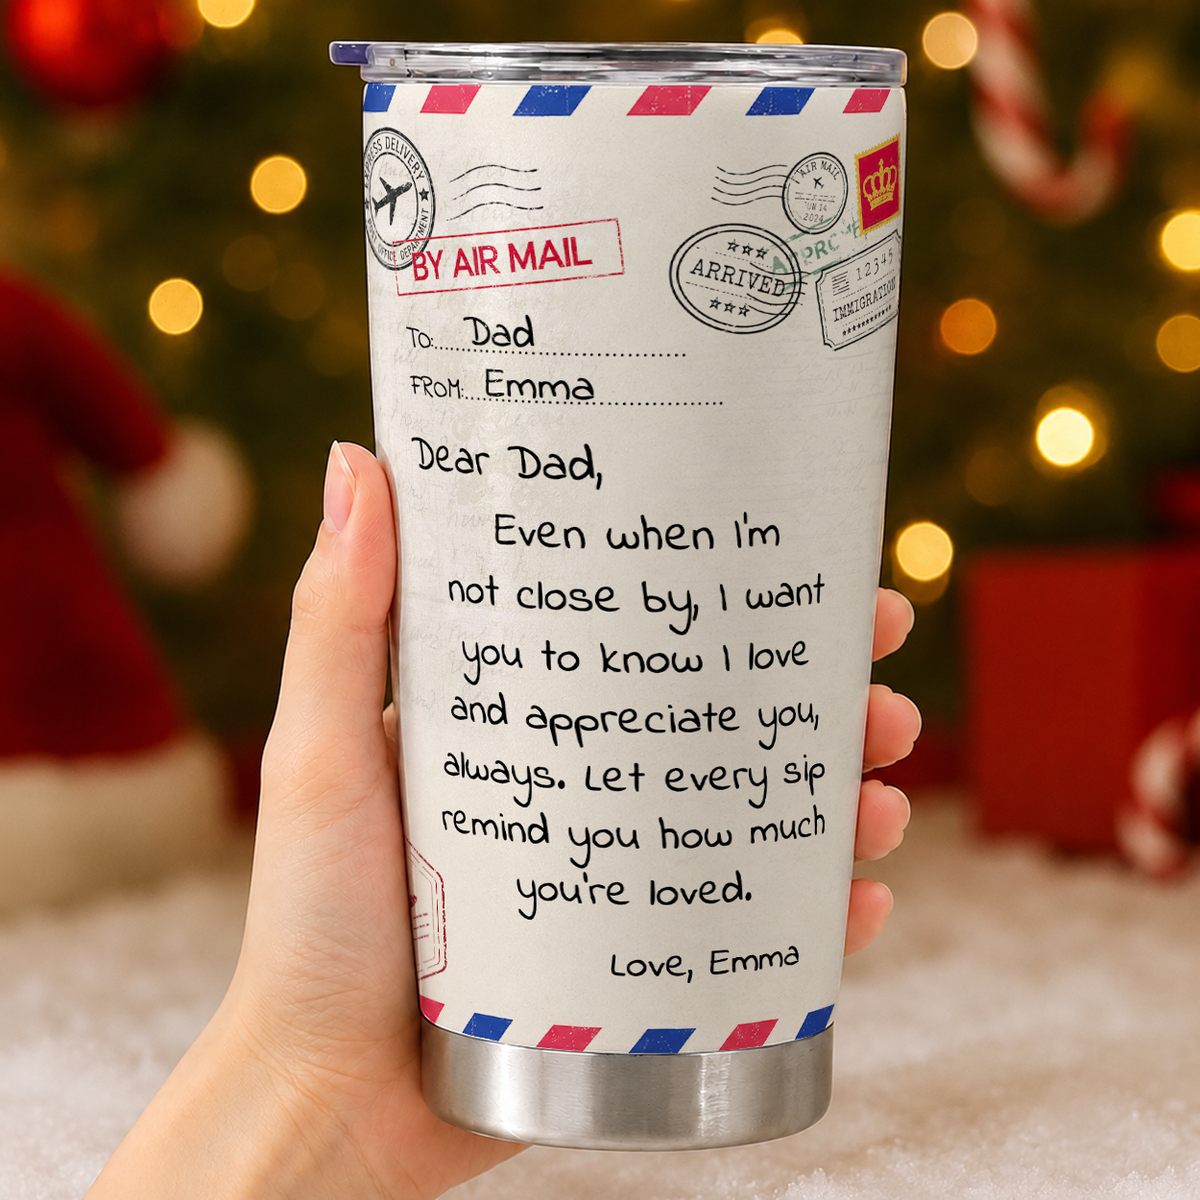 EXPRESS DELIVERY
OFFICE DEPARTMENT
BY AIR MAIL
AIR MAIL
JUN 14
2024
ARRIVED
12345
IMMIGRATION
TO: Dad
FROM: Emma
Dear Dad,
Even when I'm
not close by, I want
you to know I love
and appreciate you,
always. Let every sip
remind you how much
you're loved.
Love, Emma